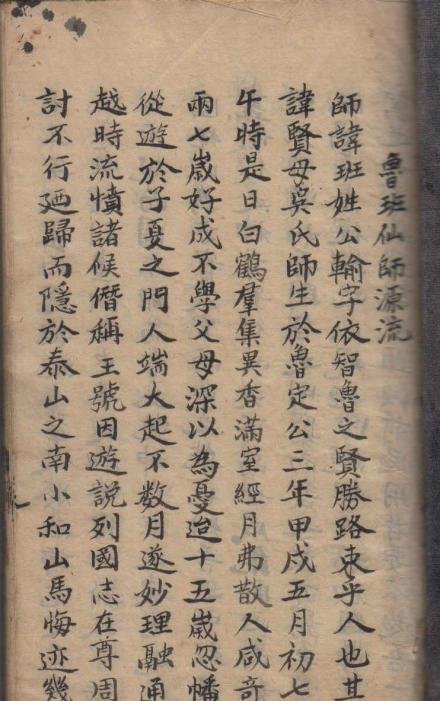 魯班仙師源流
師諱班姓公輸字依智魯之賢勝路東乎人也其
諱賢母吳氏師生於魯定公三年甲戌五月初七
午時是日白鶴羣集異香滿室經月弗散人咸奇
兩七歲好成不學父母深以為憂迨十五歲忽幡
從遊於子夏之門人端大起不数月遂妙理融通
越時流憤諸候僭稱王號因遊說列國志在尊周
討不行廼歸而隱於泰山之南小和山馬悔迹幾